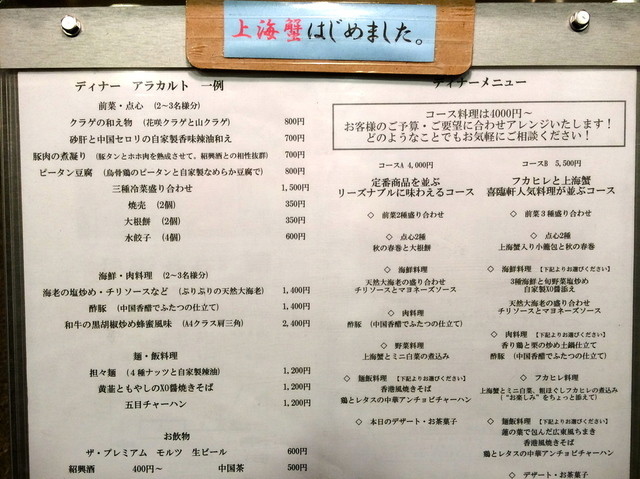 上海蟹はじめました。
ディナー アラカルト 一例
前菜・点心 (2～3名様分)
クラゲの和え物 (花咲クラゲと山クラゲ) 800円
砂肝と中国セロリの自家製香味辣油和え 700円
豚肉の煮凝り (豚タンとホホ肉を熟成させて。紹興酒との相性抜群) 700円
ピータン豆腐 (烏骨鶏のピータンと自家製なめらか豆腐で) 800円
三種冷菜盛り合わせ 1,500円
焼売 (2個) 350円
大根餅 (2個) 350円
水餃子 (4個) 600円
海鮮・肉料理 (2～3名様分)
海老の塩炒め・チリソースなど (ぷりぷりの天然大海老) 1,400円
酢豚 (中国香醋でふたつの仕立て) 1,400円
和牛の黒胡椒炒め蜂蜜風味 (A4クラス肩三角) 2,400円
麺・飯料理
担々麺 (4種ナッツと自家製辣油) 1,200円
黄韮ともやしのXO醬焼きそば 1,200円
五目チャーハン 1,200円
お飲物
ザ・プレミアム モルツ 生ビール 600円
紹興酒 400円～ 中国茶 500円
ディナーメニュー
コース料理は4000円～
お客様のご予算・ご要望に合わせアレンジいたします！
どのようなことでもお気軽にご相談ください！
コースA 4,000円
定番商品を並ぶ
リーズナブルに味わえるコース
◇ 前菜2種盛り合わせ
◇ 点心2種
秋の春巻と大根餅
◇ 海鮮料理
天然大海老の盛り合わせ
チリソースとマヨネーズソース
◇ 肉料理
酢豚 (中国香醋でふたつの仕立て)
◇ 野菜料理
上海蟹とミニ白菜の煮込み
◇ 麺飯料理 【下記よりお選びください】
香港風焼きそば
鶏とレタスの中華アンチョビチャーハン
◇ 本日のデザート・お茶菓子
コースB 5,500円
フカヒレと上海蟹
喜臨軒人気料理が並ぶコース
◇ 前菜3種盛り合わせ
◇ 点心2種
上海蟹入り小籠包と秋の春巻
◇ 海鮮料理 【下記よりお選びください】
3種海鮮と旬野菜塩炒め
自家製XO醬添え
天然大海老の盛り合わせ
チリソースとマヨネーズソース
◇ 肉料理 【下記よりお選びください】
香り鶏と栗の炒め土鍋仕立て
酢豚 (中国香醋でふたつの仕立て)
◇ フカヒレ料理
上海蟹とミニ白菜、粗ほぐしフカヒレの煮込み
("お楽しみ"をちょっと添えて)
◇ 麺飯料理 【下記よりお選びください】
蓮の葉で包んだ広東風ちまき
香港風焼きそば
鶏とレタスの中華アンチョビチャーハン
◇ デザート・お茶菓子